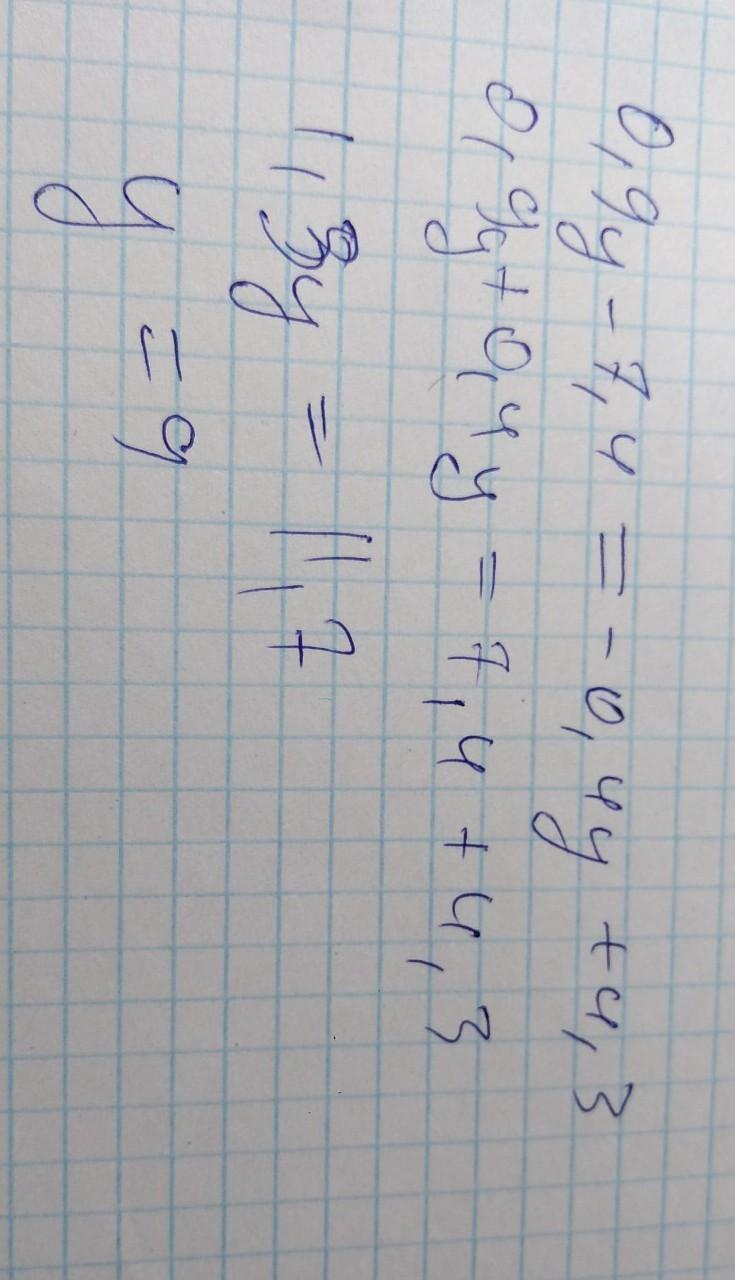 0,9y - 7,4 = - 0,4y + 4,3
0,9y + 0,4y = 7,4 + 4,3
1,3y = 11,7
y = 9